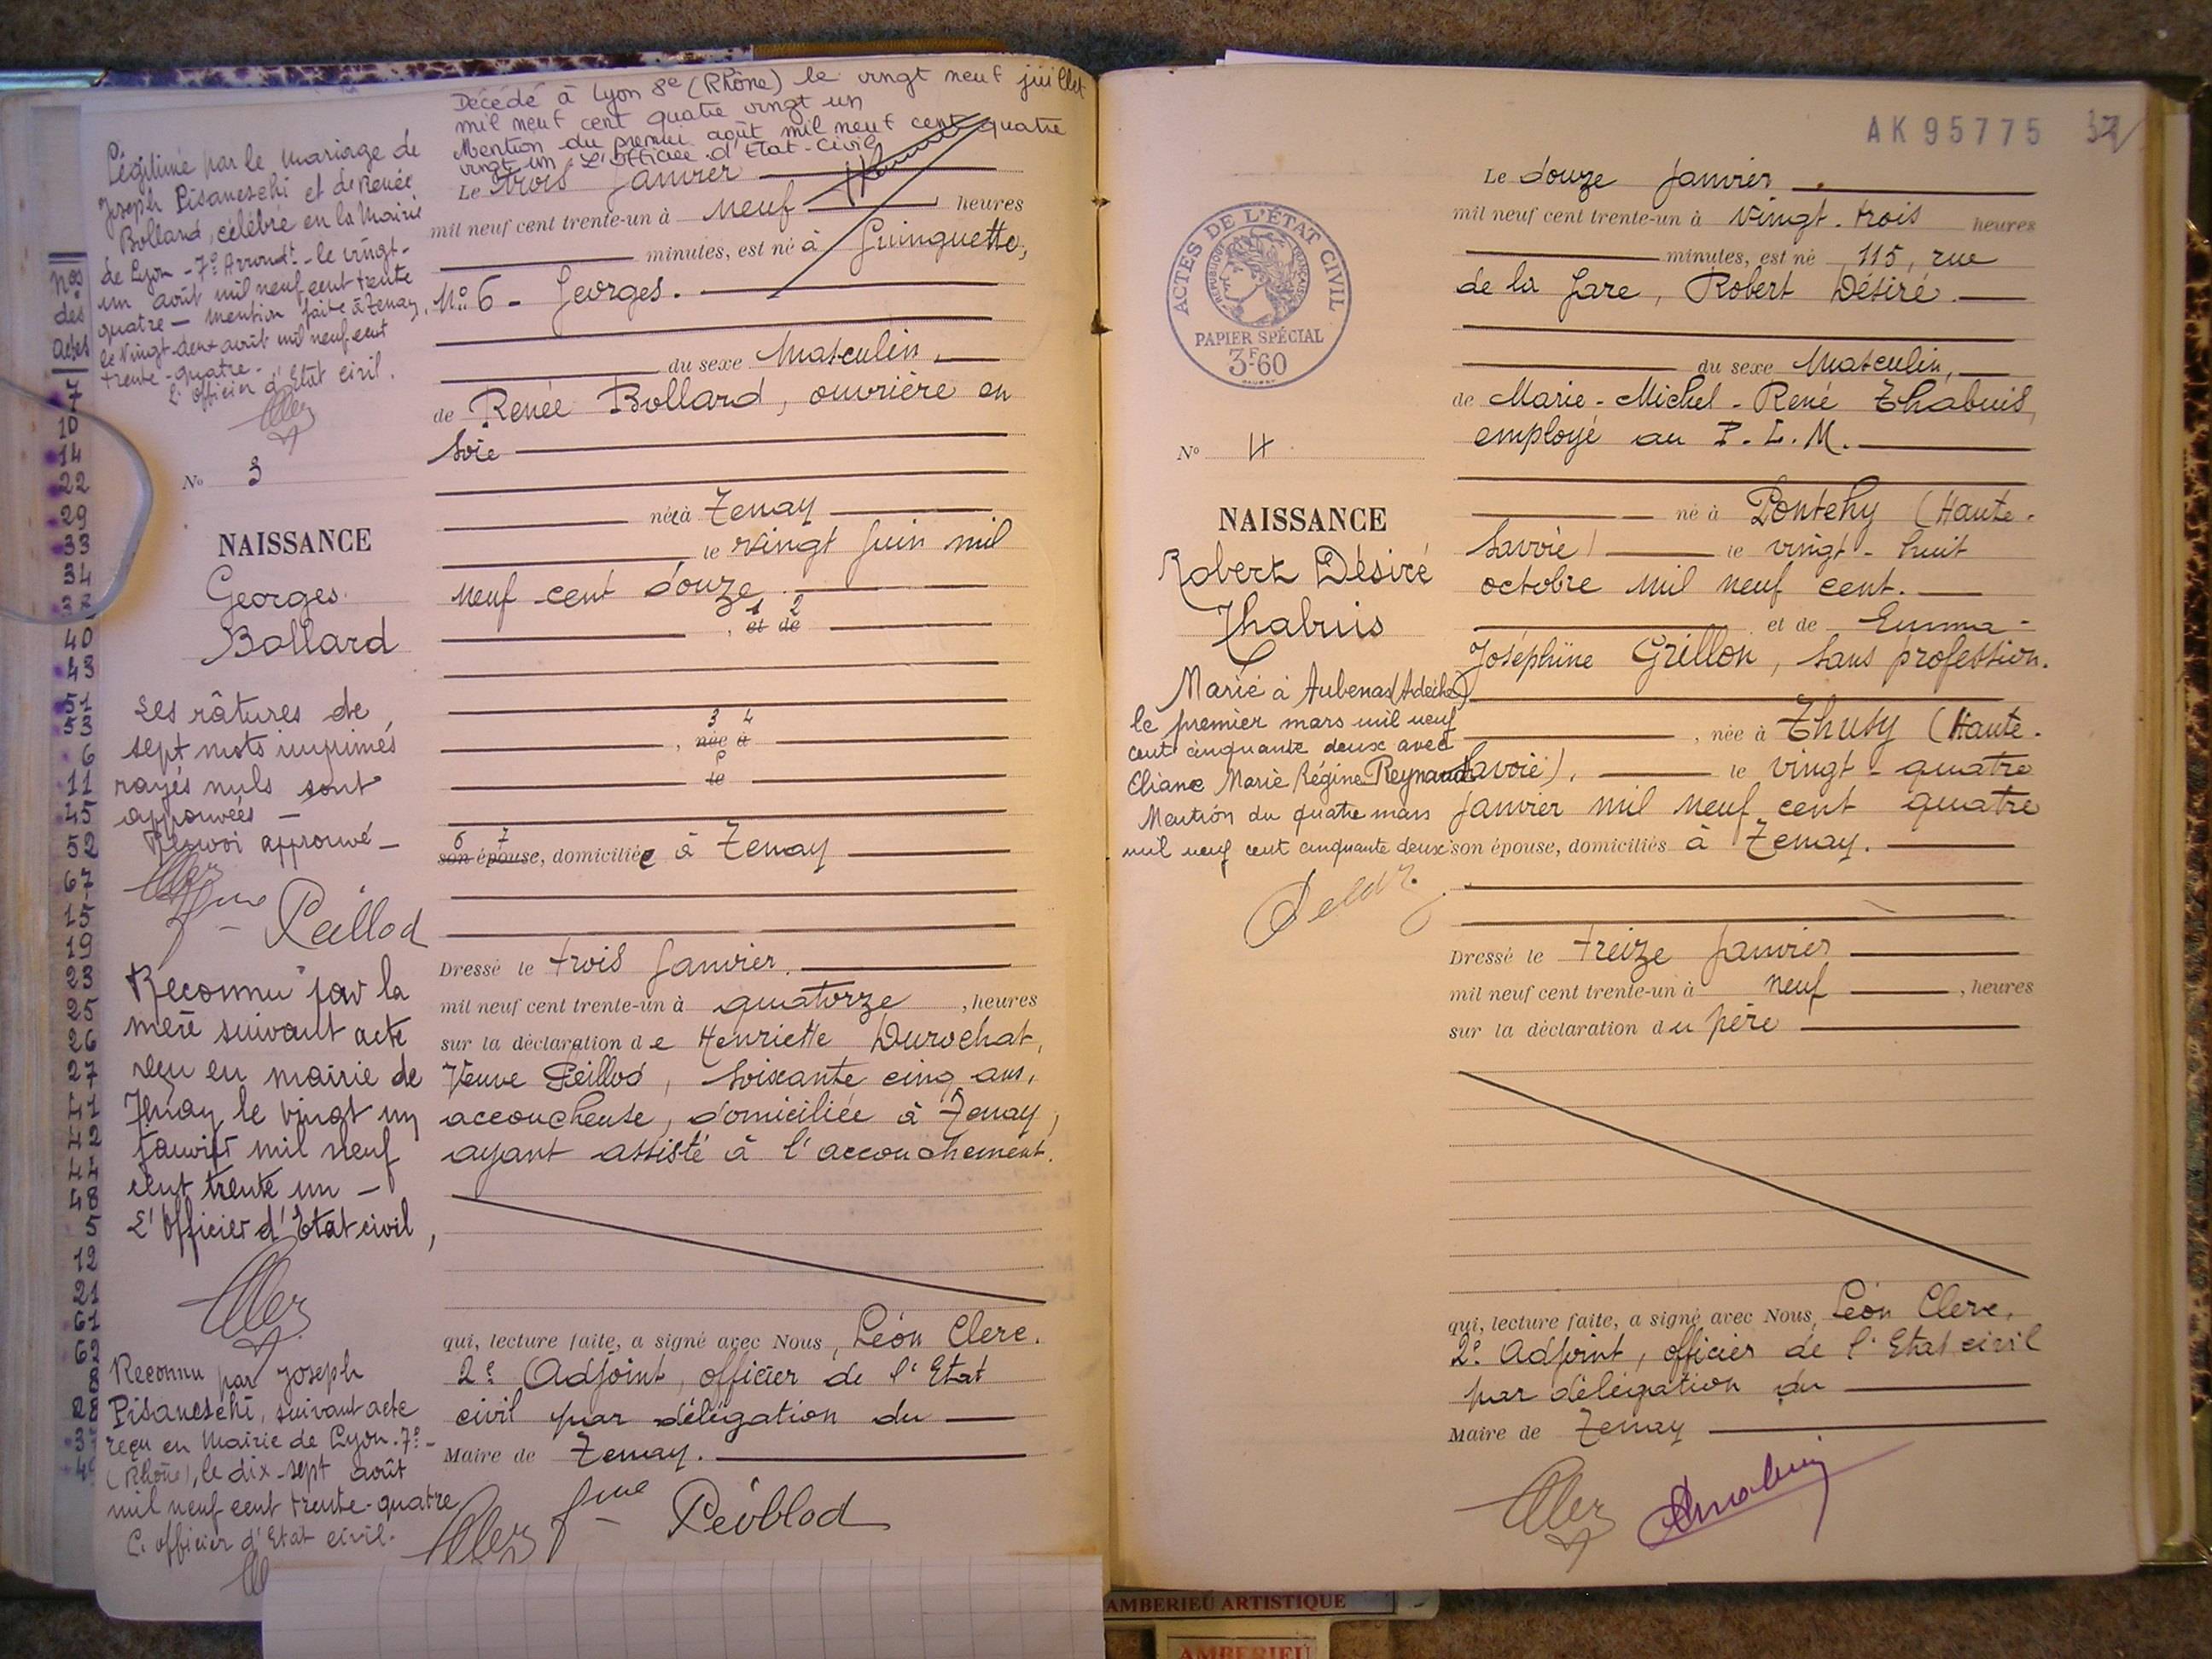 Décédé à Lyon 8e (Rhône) le vingt neuf juillet
mil neuf cent quatre vingt un
Mention du premier août mil neuf cent quatre
vingt un L'Officier d'Etat-Civil
Légitimé par le mariage de
Joseph Pisaneschi et de Renée
Bollard, célébré en la Mairie
de Lyon - 7e Arrondt - le vingt-
un août mil neuf cent trente
quatre - mention faite à Tenay,
le vingt-deux août mil neuf cent
trente-quatre-
L'officier d'Etat civil.
Nos
des
actes
7
10
14
22
29
33
34
37
40
43
51
53
6
11
45
52
67
15
19
23
25
26
27
41
42
44
48
5
12
21
61
62
8
28
No 3
NAISSANCE
Georges
Bollard
Les râtures de
sept mots imprimés
rayés nuls sont
approuvées -
Renvoi approuvé -
fme Peillod
Reconnu par la
mère suivant acte
reçu en mairie de
Tenay le vingt un
janvier mil neuf
cent trente un -
L'Officier d'Etat civil,
Reconnu par Joseph
Pisaneschi, suivant acte
reçu en Mairie de Lyon-7e-
(Rhône), le dix-sept août
mil neuf cent trente-quatre
L'officier d'Etat civil.
Le trois Janvier
mil neuf cent trente-un à neuf heures
minutes, est né à Guinguette,
No 6 - Georges.
du sexe Masculin,
de Renée Bollard, ouvrière en
soie
née à Tenay
le vingt Juin mil
neuf cent douze.
1 2
, et de
3 4
, née à
le
6 7
son épouse, domiciliée à Tenay
Dressé le trois Janvier.
mil neuf cent trente-un à quatorze , heures
sur la déclaration de Henriette Durochat,
Veuve Peillod, soixante cinq ans,
accoucheuse, domiciliée à Tenay,
ayant assisté à l'accouchement.
qui, lecture faite, a signé avec Nous, Léon Clerc.
2e Adjoint, officier de l'Etat
civil par délégation du
Maire de Tenay.
fme Peillod
AK 95775
ACTES DE L'ÉTAT CIVIL
REPUBLIQUE FRANÇAISE
PAPIER SPÉCIAL
3F60
No 4
NAISSANCE
Robert Désiré
Thabuis
Marié à Aubenas (Ardèche)
le premier mars mil neuf
cent cinquante deux avec
Eliane Marie Régine Reynaud
Mention du quatre mars
mil neuf cent cinquante deux
Le douze Janvier
mil neuf cent trente-un à vingt-trois heures
minutes, est né 115, rue
de la Gare, Robert Désiré.
du sexe Masculin,
de Marie-Michel-René Thabuis,
employé au P.L.M.
né à Pontchy (Haute-
Savoie) le vingt-huit
octobre mil neuf cent.
et de Emma-
Joséphine Grillon, sans profession.
, née à Thusy (Haute-
Savoie), le vingt-quatre
Janvier mil neuf cent quatre
son épouse, domiciliés à Tenay.
Dressé le treize Janvier
mil neuf cent trente-un à neuf , heures
sur la déclaration du père
qui, lecture faite, a signé avec Nous, Léon Clerc,
2e Adjoint, officier de l'Etat civil
par délégation du
Maire de Tenay
AMBERIEU ARTISTIQUE
AMBERIEU